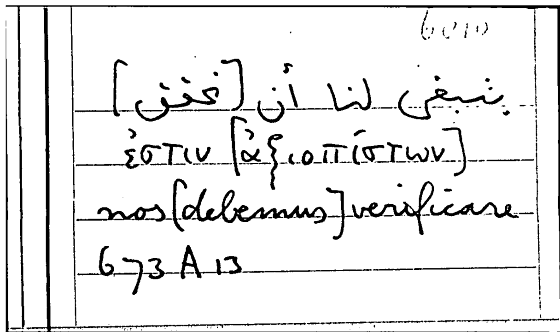 6010
ينبغى لنا أن [نحقق]
ἐστιν [ἀξιοπίστων]
nos [debemus] verificare
673 A 13